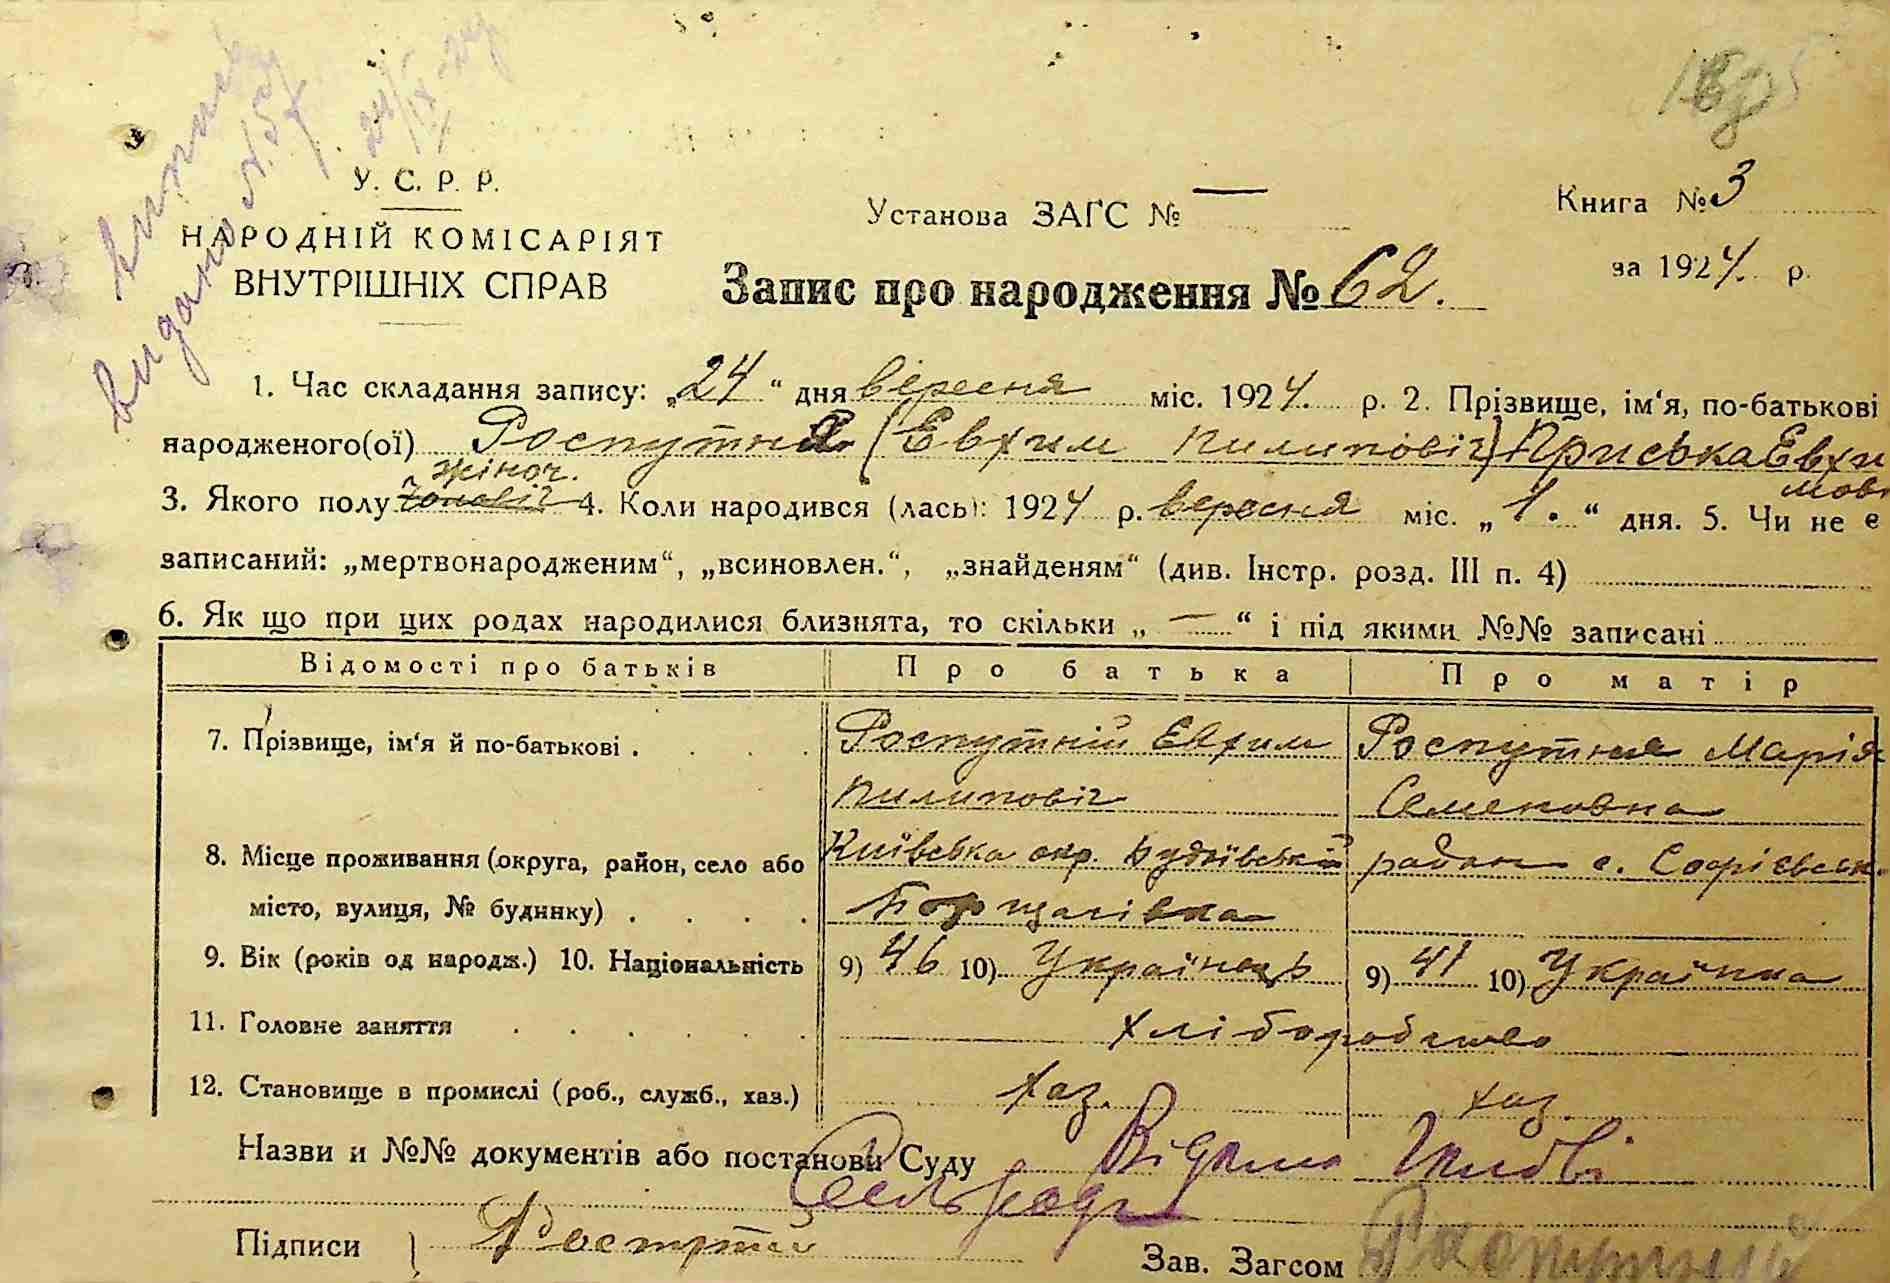 виписка
видано № 57
24/IX-24 р
У. С. Р. Р.
НАРОДНІЙ КОМІСАРІЯТ
ВНУТРІШНІХ СПРАВ
Установа ЗАГС № —
Книга № 3
за 1924. р.
Запис про народження № 62.
1. Час складання запису: „24“ дня вересня міс. 1924. р. 2. Прізвище, ім‘я, по-батькові
народженого(ої) Роспутня (Евхим Пилипович) Приська Евхи
мов
жіноч.
3. Якого полу чоловіч 4. Коли народився (лась): 1924 р. вересня міс. „1.“ дня. 5. Чи не є
записаний: „мертвонародженим“, „всиновлен.“, „знайденям“ (див. Інстр. розд. III п. 4)
6. Як що при цих родах народилися близнята, то скільки „—“ і під якими №№ записані
Відомості про батьків Про батька Про матір
7. Прізвище, ім‘я й по-батькові . . . . Роспутній Евхим Роспутня Марія
Пилиповіч Семеновна
8. Місце проживання (округа, район, село або Київська окр. Будаївський район с. Софієвськ.
місто, вулиця, № будинку) . . . . Борщагівка
9. Вік (років од народж.) 10. Національність 9) 46 10) Українець 9) 41 10) Українка
11. Головне заняття . . . . . . хліборобство
12. Становище в промислі (роб., служб., хаз.) хаз. хаз.
Назви и №№ документів або постанови Суду
Сельради
Підписи
Зав. Загсом Распутний